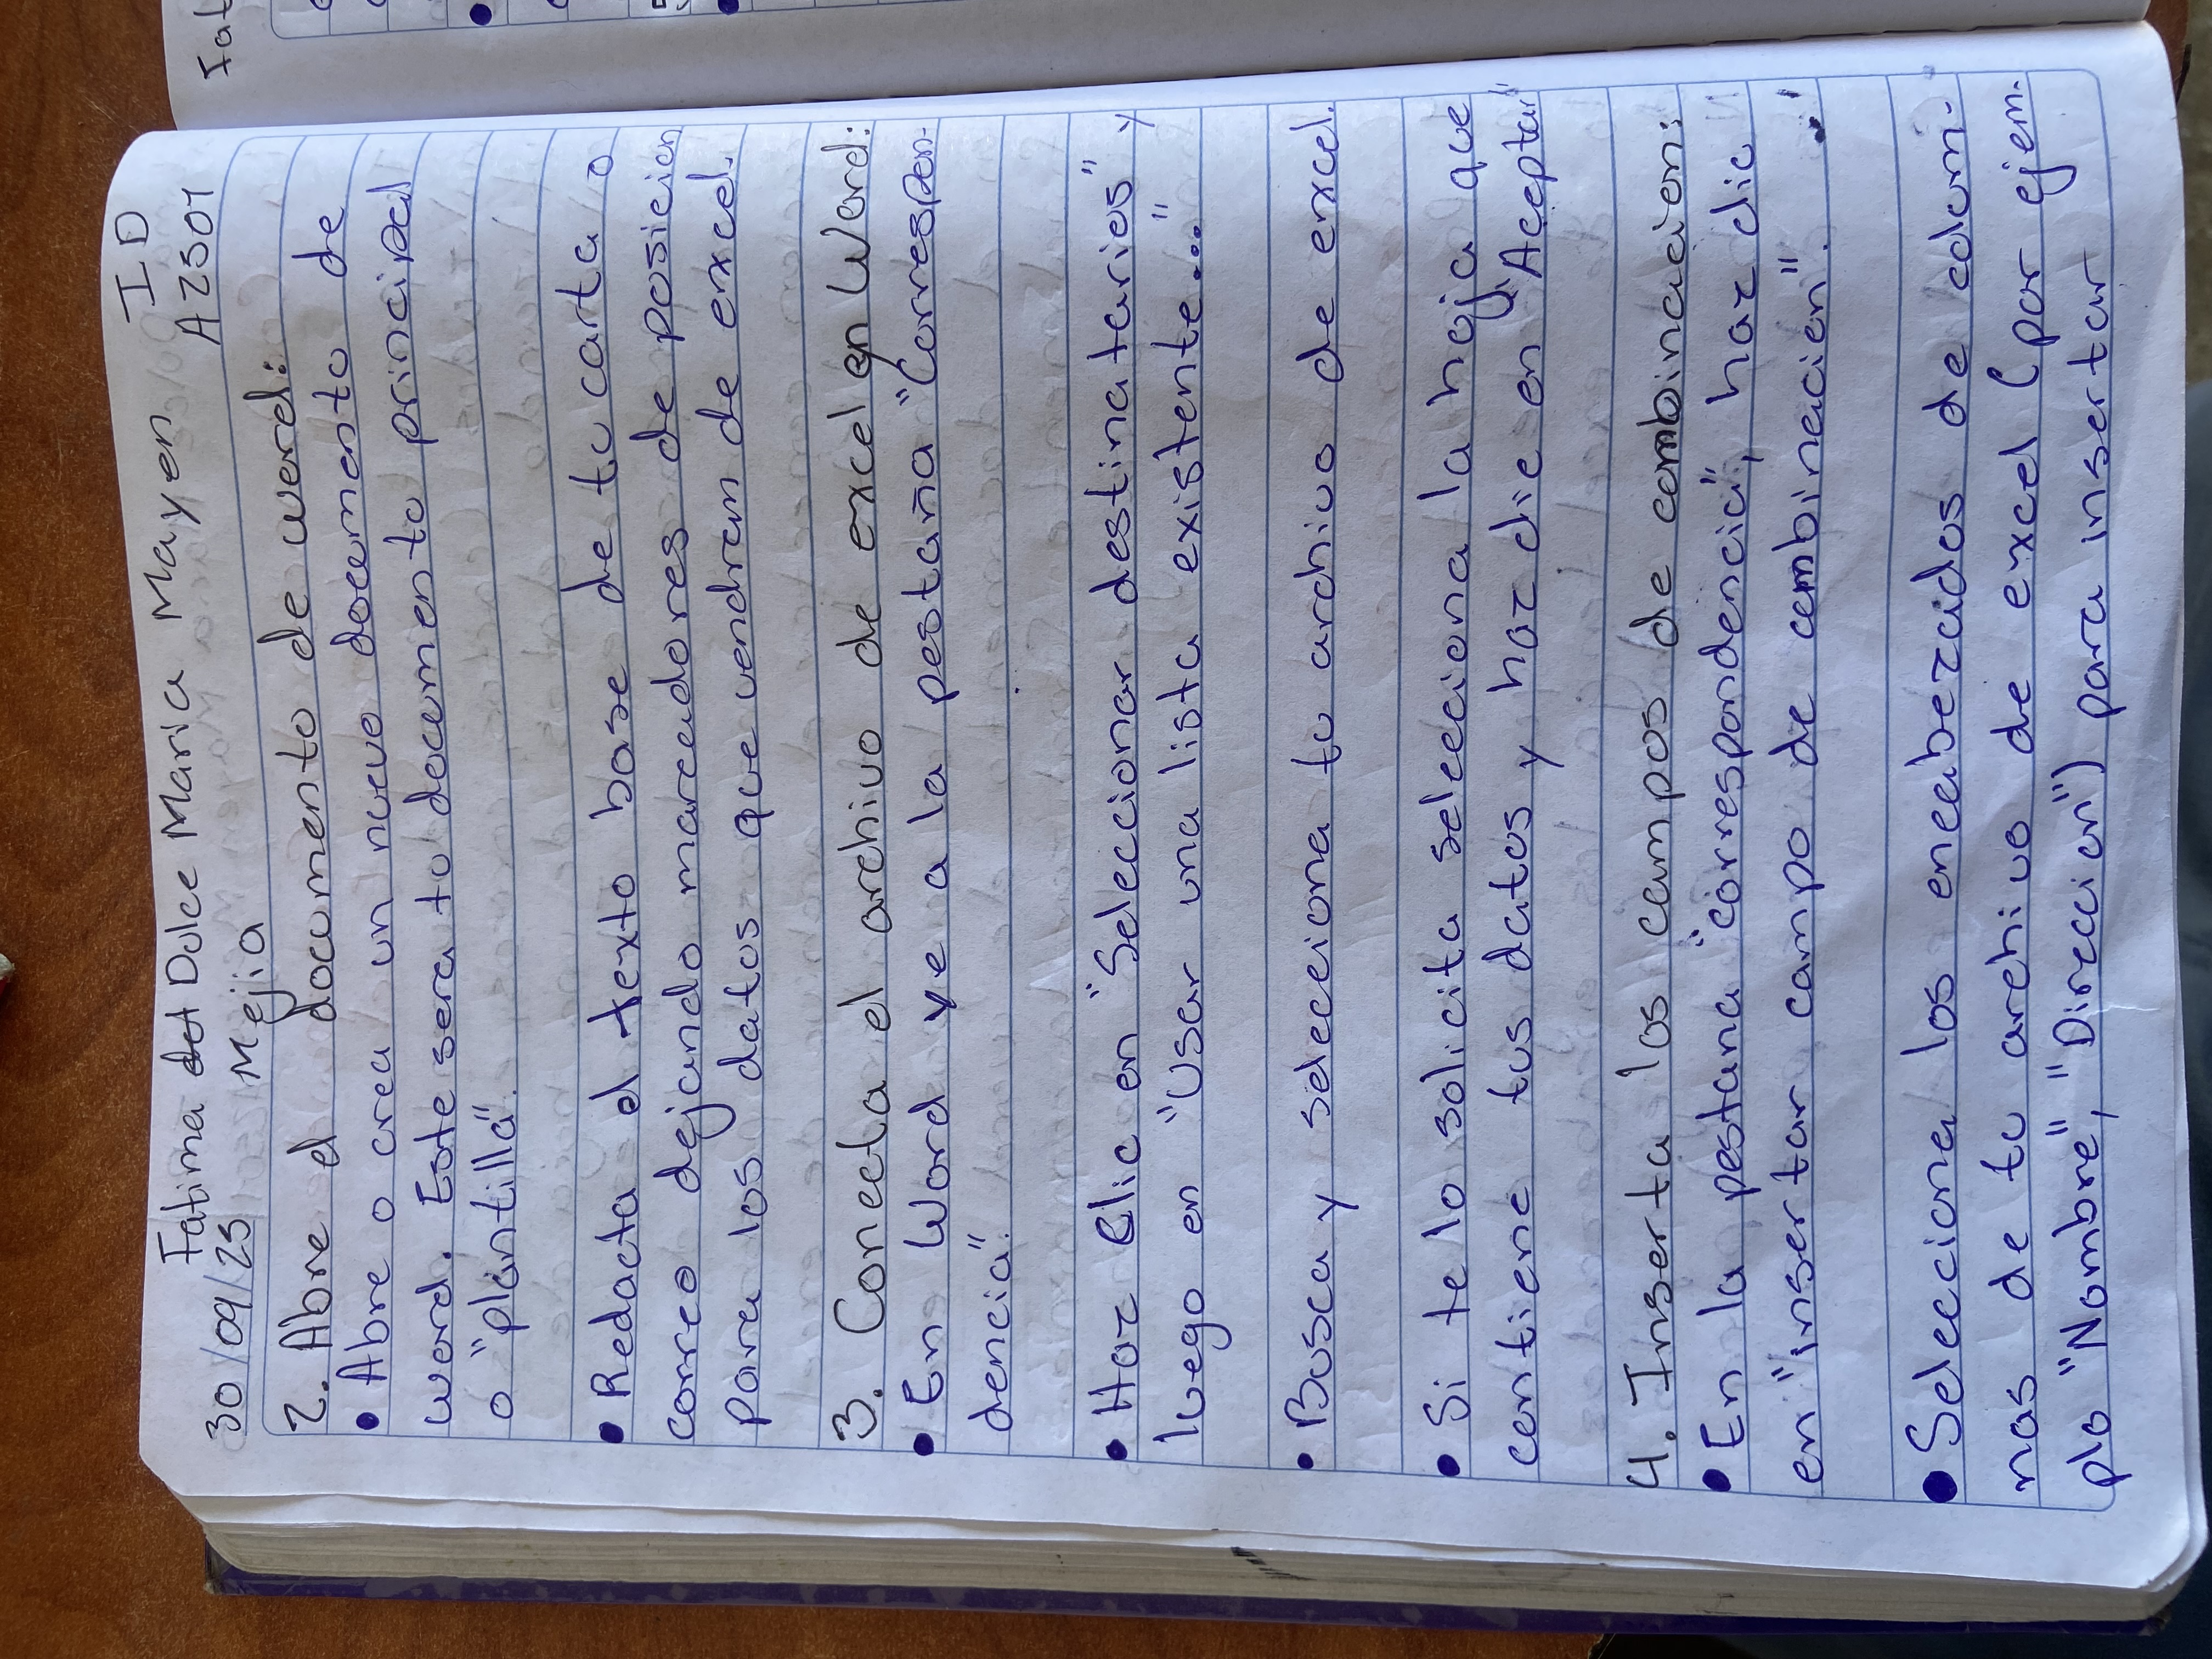 Fatima det Dulce Maria Mayen I D
30/09/25 Mejia A2501
2. Abre el documento de word:
• Abre o crea un nuevo documento de
word. Este sera tu documento principal
o "plantilla".
• Redacta el texto base de tu carta o
correo dejando marcadores de posicion
para los datos que vendran de excel.
3. Conecta el archivo de excel en Word:
• En Word ve a la pestaña "Correspon-
dencia".
• Haz Clic en "Seleccionar destinatarios" y
luego en "Usar una lista existente..."
• Busca y selecciona tu archivo de excel.
• Si te lo solicita selecciona la hoja que
contiene tus datos y haz clic en "Aceptar"
4. Inserta los campos de combinacion:
• En la pestana "correspondencia", haz clic
en "insertar campo de combinacion".
• Selecciona los encabezados de colum-
nas de tu archivo de excel (por ejem-
plo "Nombre", "Direccion") para insertar
Fat